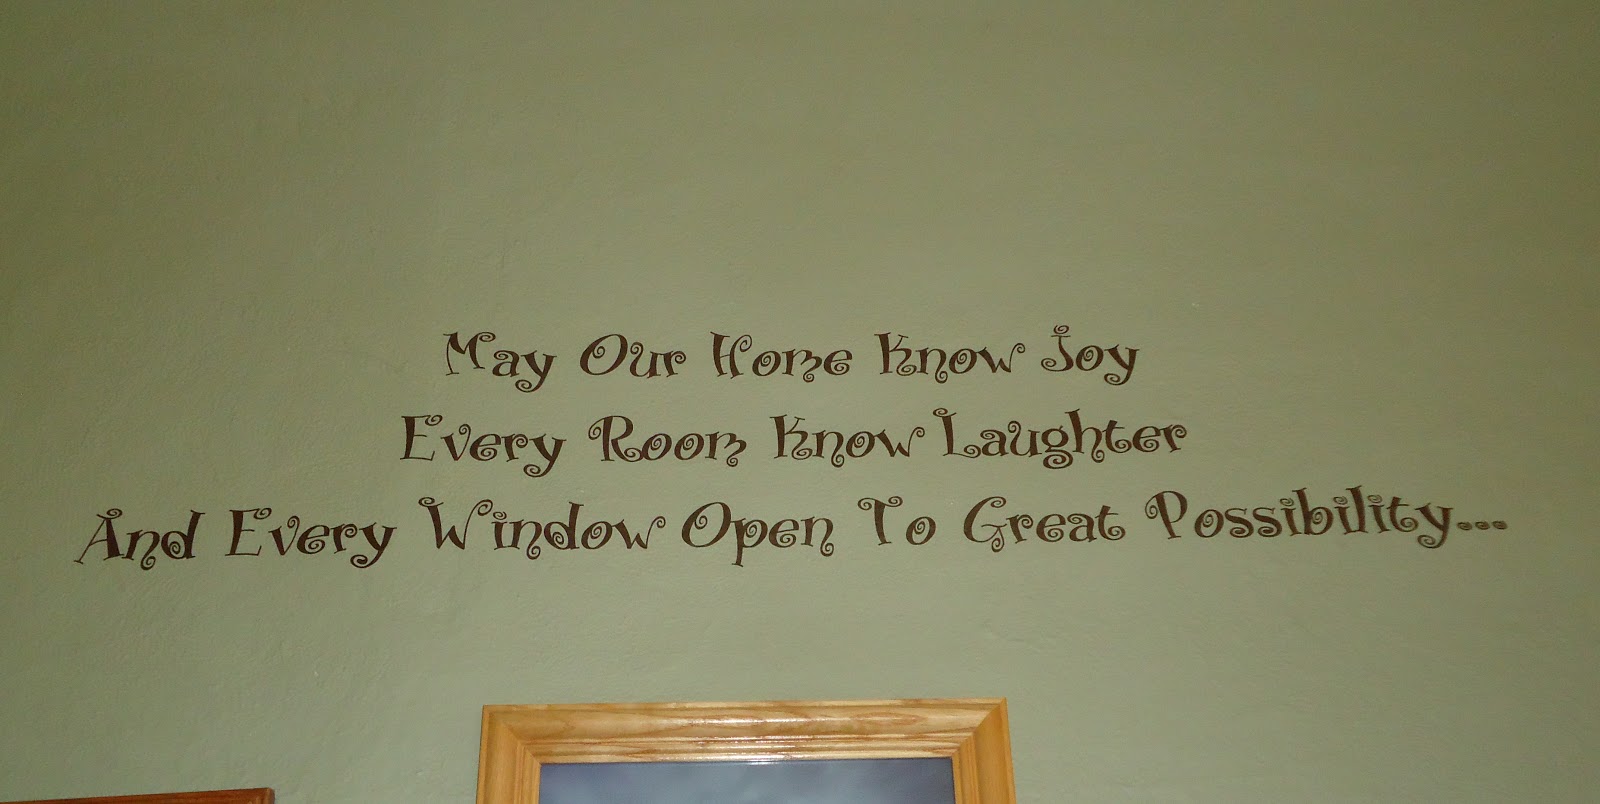 May Our Home Know Joy
Every Room Know Laughter
And Every Window Open To Great Possibility...